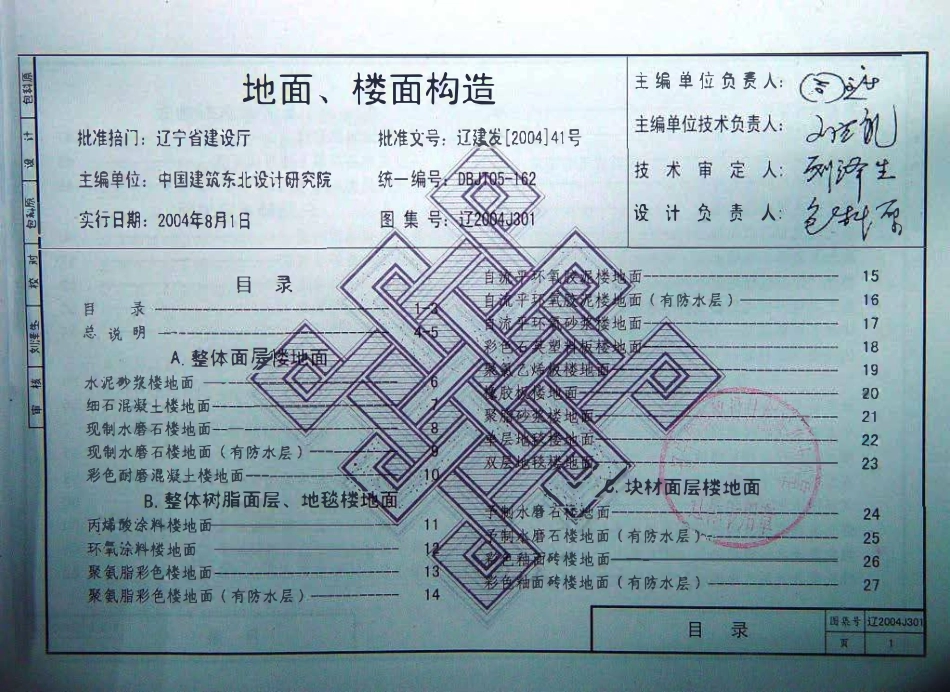 地面、楼面构造
批准掊门：辽宁省建设厅
批准文号：辽建发[2004]41号
主编单位：中国建筑东北设计研究院
统一编号：DBJT05-162
实行日期：2004年8月1日
图集号：辽2004J301
主编单位负责人：
主编单位技术负责人：
技术审定人：刘泽生
设计负责人：包科原
目录
目录 1-3
总说明 4-5
A. 整体面层楼地面
水泥砂浆楼地面 6
细石混凝土楼地面 7
现制水磨石楼地面 8
现制水磨石楼地面（有防水层） 9
彩色耐磨混凝土楼地面 10
B. 整体树脂面层、地毯楼地面
丙烯酸涂料楼地面 11
环氧涂料楼地面 12
聚氨脂彩色楼地面 13
聚氨脂彩色楼地面（有防水层） 14
自流平环氧胶泥楼地面 15
自流平环氧胶泥楼地面（有防水层） 16
自流平环氧砂浆楼地面 17
彩色石英塑料板楼地面 18
聚氯乙烯板楼地面 19
橡胶板楼地面 20
聚脂砂浆楼地面 21
单层地毯楼地面 22
双层地毯楼地面 23
C. 块材面层楼地面
予制水磨石楼地面 24
予制水磨石楼地面（有防水层） 25
彩色釉面砖楼地面 26
彩色釉面砖楼地面（有防水层） 27
目录
图集号 辽2004J301
页 1
包科原
设计
包科原
校对
刘泽生
审核